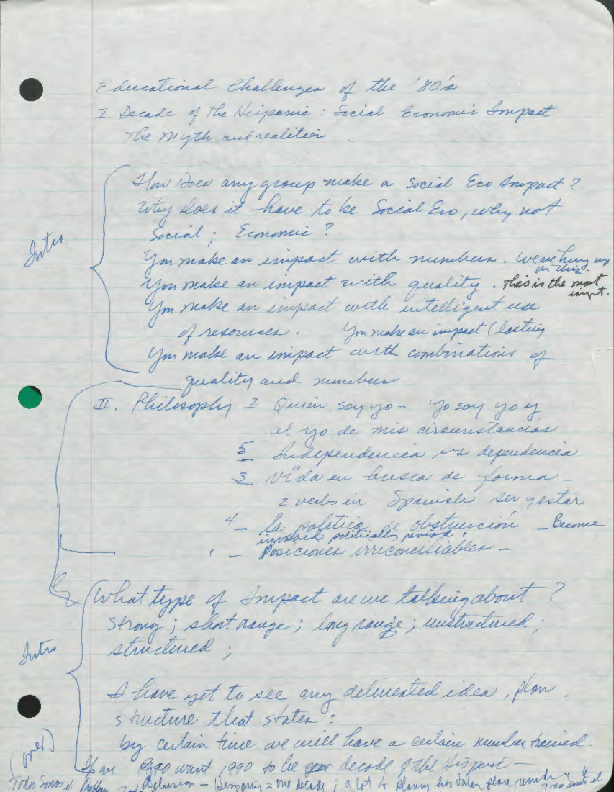 Educational Challenges of the '80's
I Decade of The Hispanic : Social Economic Impact
The Myth and realities
How does any group make a Social Eco Impact?
Why does it have to be Social Eco, why not
Social ; Economic ?
Intro
You make an impact with numbers. We are hung up
on this.
You make an impact with quality. This is the most
import.
You make an impact with intelligent use
of resources. You make an impact (lasting
You make an impact with combinations of
quality and numbers
II. Philosophy 2 Quien soy yo - Yo soy yo y
el yo de mis circunstancias
5 Independencia vs dependencia
3 Vida en busca de forma -
2 verbs in Spanish ser y estar
4 - la politica de obstrucción - Become
involved politically
1 - Posiciones irreconciliables -
What type of Impact are we talking about?
Strong ; short range ; long range ; unstructured ;
structured ;
Intro
I have yet to see any delineated idea, plan,
structure that states :
by certain time we will have a certain number trained.
(over) If we want 1990 to be decade of the Hispanic -
Todos Somos one decade ; a lot of planning has taken place